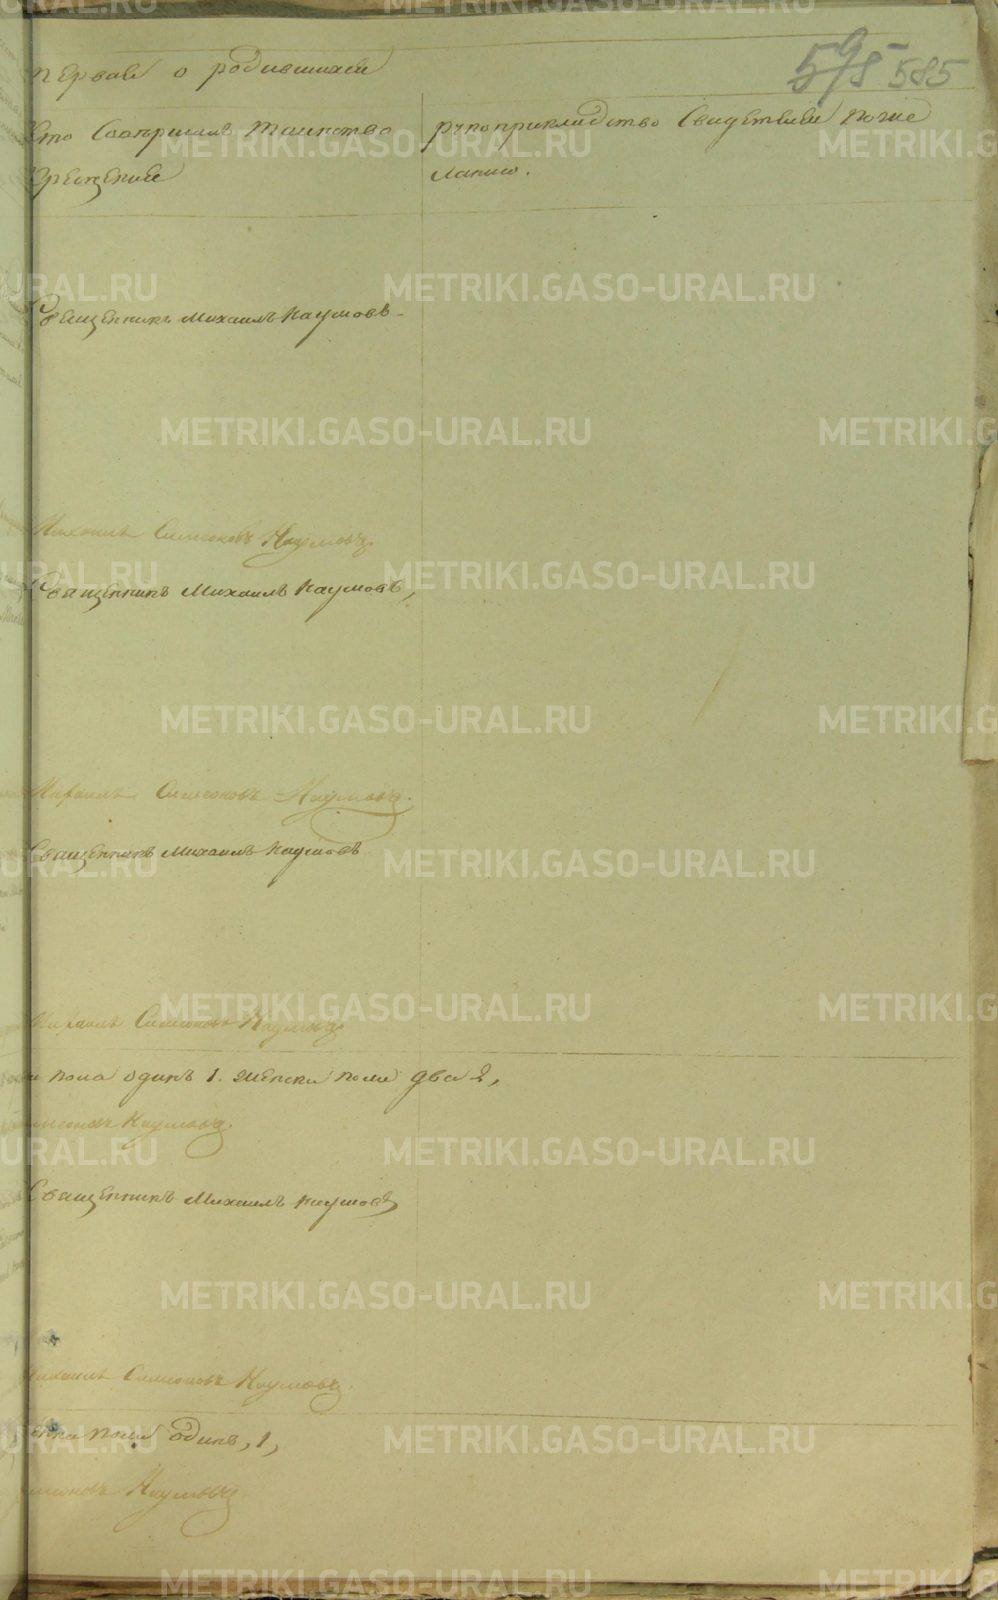 первая о родившихся
595 585
Кто Совершалъ таинство
крещения
рукоприкладство Свидетелей по же
ланию.
Священникъ Михаилъ Наумовъ
Михаилъ Симеоновъ Наумовъ
Священникъ Михаилъ Наумовъ,
Михаилъ Симеоновъ Наумовъ.
Священникъ Михаилъ Наумовъ
Михаилъ Симеоновъ Наумовъ
пола одинъ 1. женска пола два 2,
Симеоновъ Наумовъ.
Священникъ Михаилъ Наумовъ
Михаилъ Симеоновъ Наумовъ.
пола одинъ, 1,
Симеоновъ Наумовъ.
METRIKI.GASO-URAL.RU